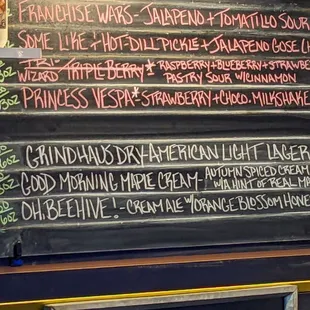 FRANCHISE WARS - JALAPENO + TOMATILLO SOUR
SOME LIKE + HOT - DILL PICKLE + JALAPENO GOSE
TRI-
WIZARD TRIPLE BERRY* RASPBERRY+BLUEBERRY+STRAWBE
PASTRY SOUR W/CINNAMON
PRINCESS VESPA* - STRAWBERRY + CHOCO. MILKSHAKE
GRINDHAUS DRY - AMERICAN LIGHT LAGER
GOOD MORNING MAPLE CREAM - AUTUMN SPICED CREAM
W/A HINT OF REAL MA
OH, BEEHIVE! - CREAM ALE W/ORANGE BLOSSOM HONE